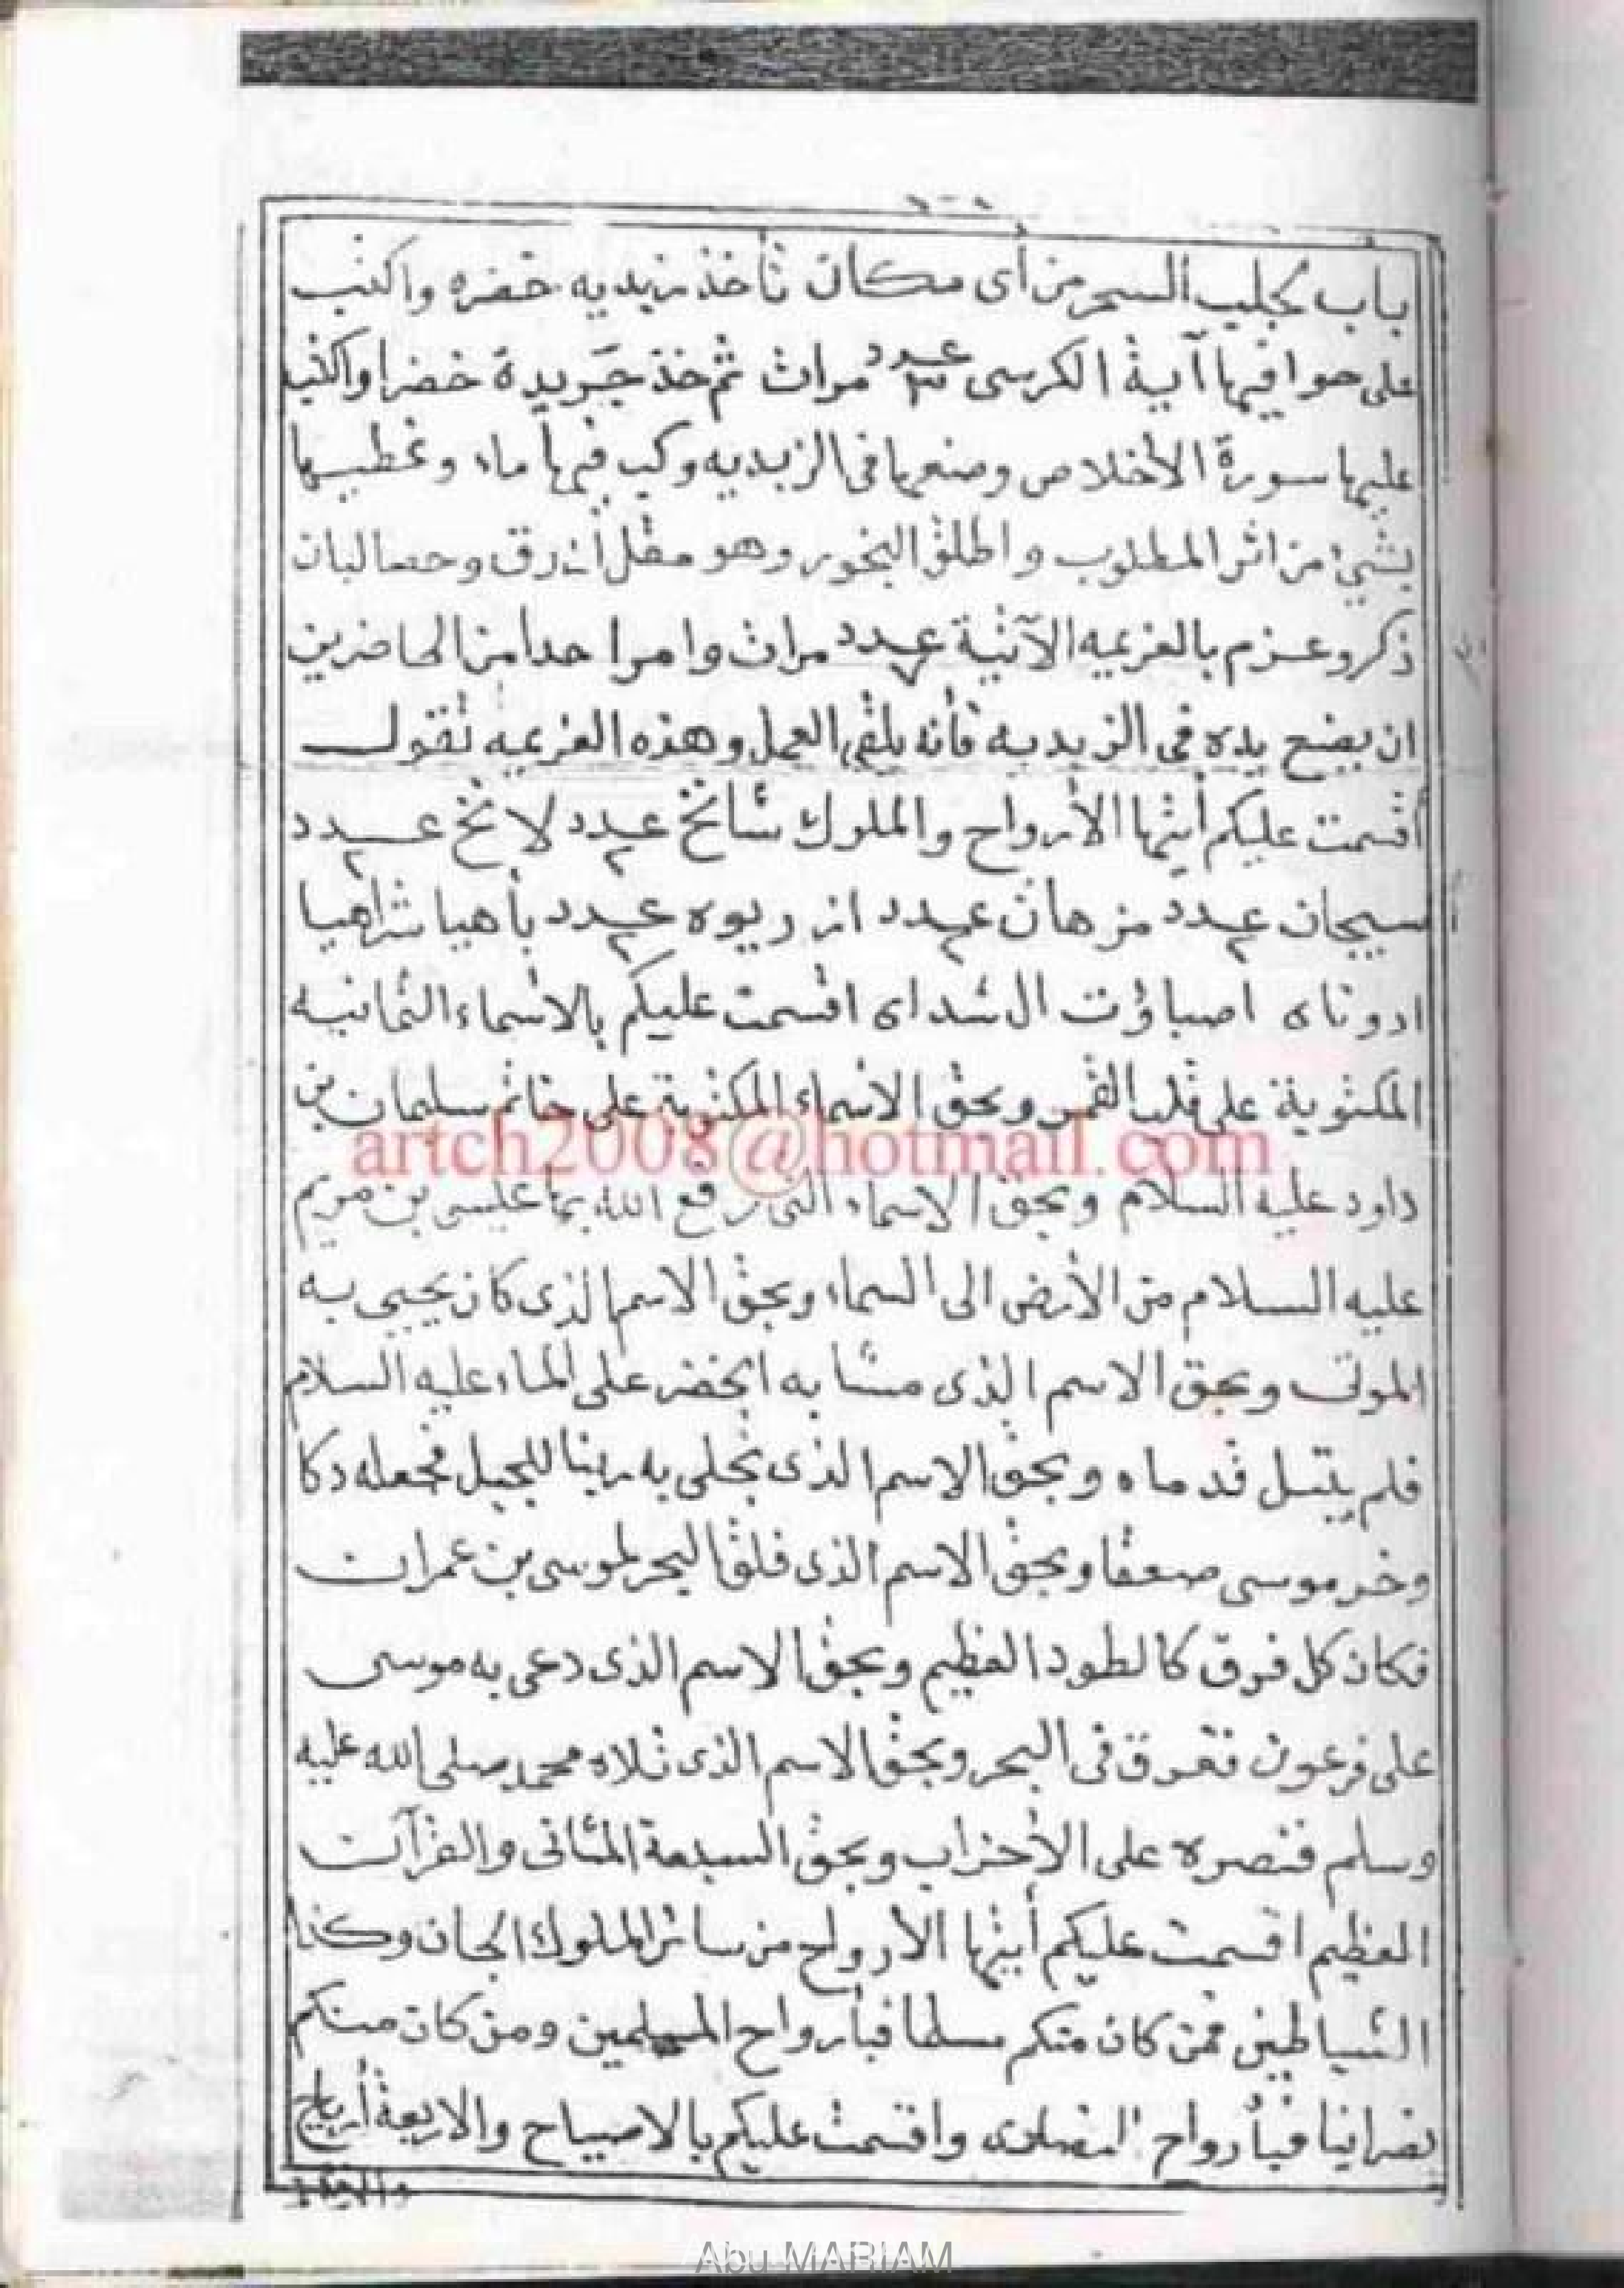 باب لجلب السحر من أى مكان تأخذ زبديه خضره واكتب
على حوافيها آية الكرسى عدد ٣ مرات ثم خذ جريدة خضرا واكتب
عليها سورة الأخلاص وضعها فى الزبديه وكب فيها ماء وغطيها
بشيئ من اثر المطلوب واطلق البخور وهو مقل أزرق وحصالبان
ذكر وعزم بالعزيمه الآتية عدد مرات وامر احدا من الحاضرين
ان يضع يده فى الزبديه فأنه يلقى العمل وهذه العزيمه تقول
أقسمت عليكم أيتها الأرواح والملوك شانخ عدد ٢ لانخ عدد ٢
سيجان عدد ٢ مزهان عدد ٢ ازريوه عدد ٢ بأهيا شراهيا
ادوناى اصباؤت ال شداى اقسمت عليكم بالاسماء الثمانيه
المكتوبة على قلب القمر وبحق الاسماء المكتوبة على خاتم سليمان بن
artch2008@hotmail.com
داود عليه السلام وبحق الاسماء التى رفع الله بها عيسى بن مريم
عليه السلام من الأرض الى السماء وبحق الاسم الذى كان يحيى به
الموتى وبحق الاسم الذى مشا به الخضر على الماء عليه السلام
فلم يبتل قدماه وبحق الاسم الذى تجلى به ربنا للجبل فجعله دكا
وخر موسى صعقا وبحق الاسم الذى فلق البحر لموسى بن عمران
فكان كل فرق كالطود العظيم وبحق الاسم الذى دعى به موسى
على فرعون فغرق فى البحر وبحق الاسم الذى تلاه محمد صلى الله عليه
وسلم فنصره على الأحزاب وبحق السبعة المثانى والقرآن
العظيم اقسمت عليكم أيتها الارواح من سائر الملوك الجان وكذا
الشياطين فمن كان منكم مسلما فبأرواح المسلمين ومن كان منكم
نصرانيا فبأرواح النصارى واقسمت عليكم بالاصباح والاربعة أرياح
Abu MARIAM